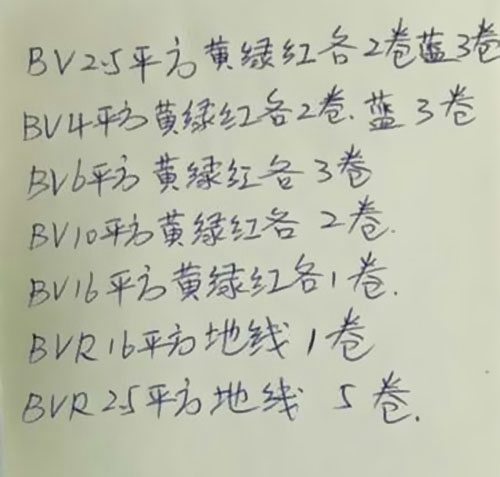 BV2.5平方黄绿红各2卷蓝3卷
BV4平方黄绿红各2卷.蓝3卷
BV6平方黄绿红各3卷
BV10平方黄绿红各2卷.
BV16平方黄绿红各1卷.
BVR16平方地线1卷
BVR2.5平方地线5卷.